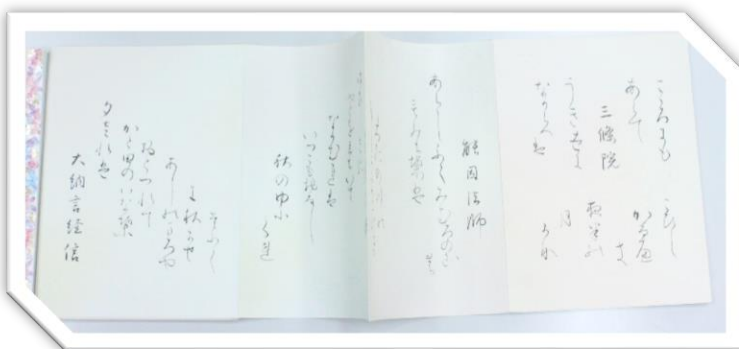 三條院
こころにも
あらて
うき世に
なからへは
こひし
かるへき
夜半の
月
かな
能因法師
あらしふくみむろのやま
の
もみち葉は
なかむれは
いつこも於なし
秋のゆふ
くれ
大納言経信
夕されは
かと田のいな葉
於とつれて
あしのまろや
に秋かせ
そふく